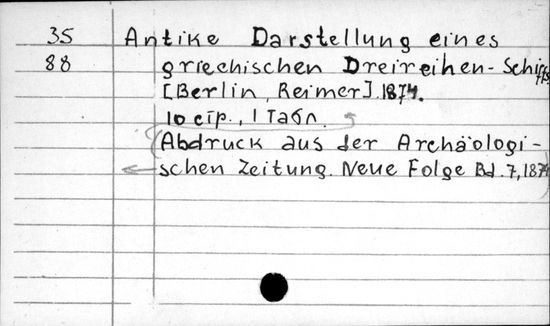 35 Antike Darstellung eines
88 griechischen Dreireihen-Schiffs
[Berlin, Reimer] 1874.
10 стр., 1 табл.
(Abdruck aus der Archäologi-
schen Zeitung. Neue Folge Bd. 7, 1874)